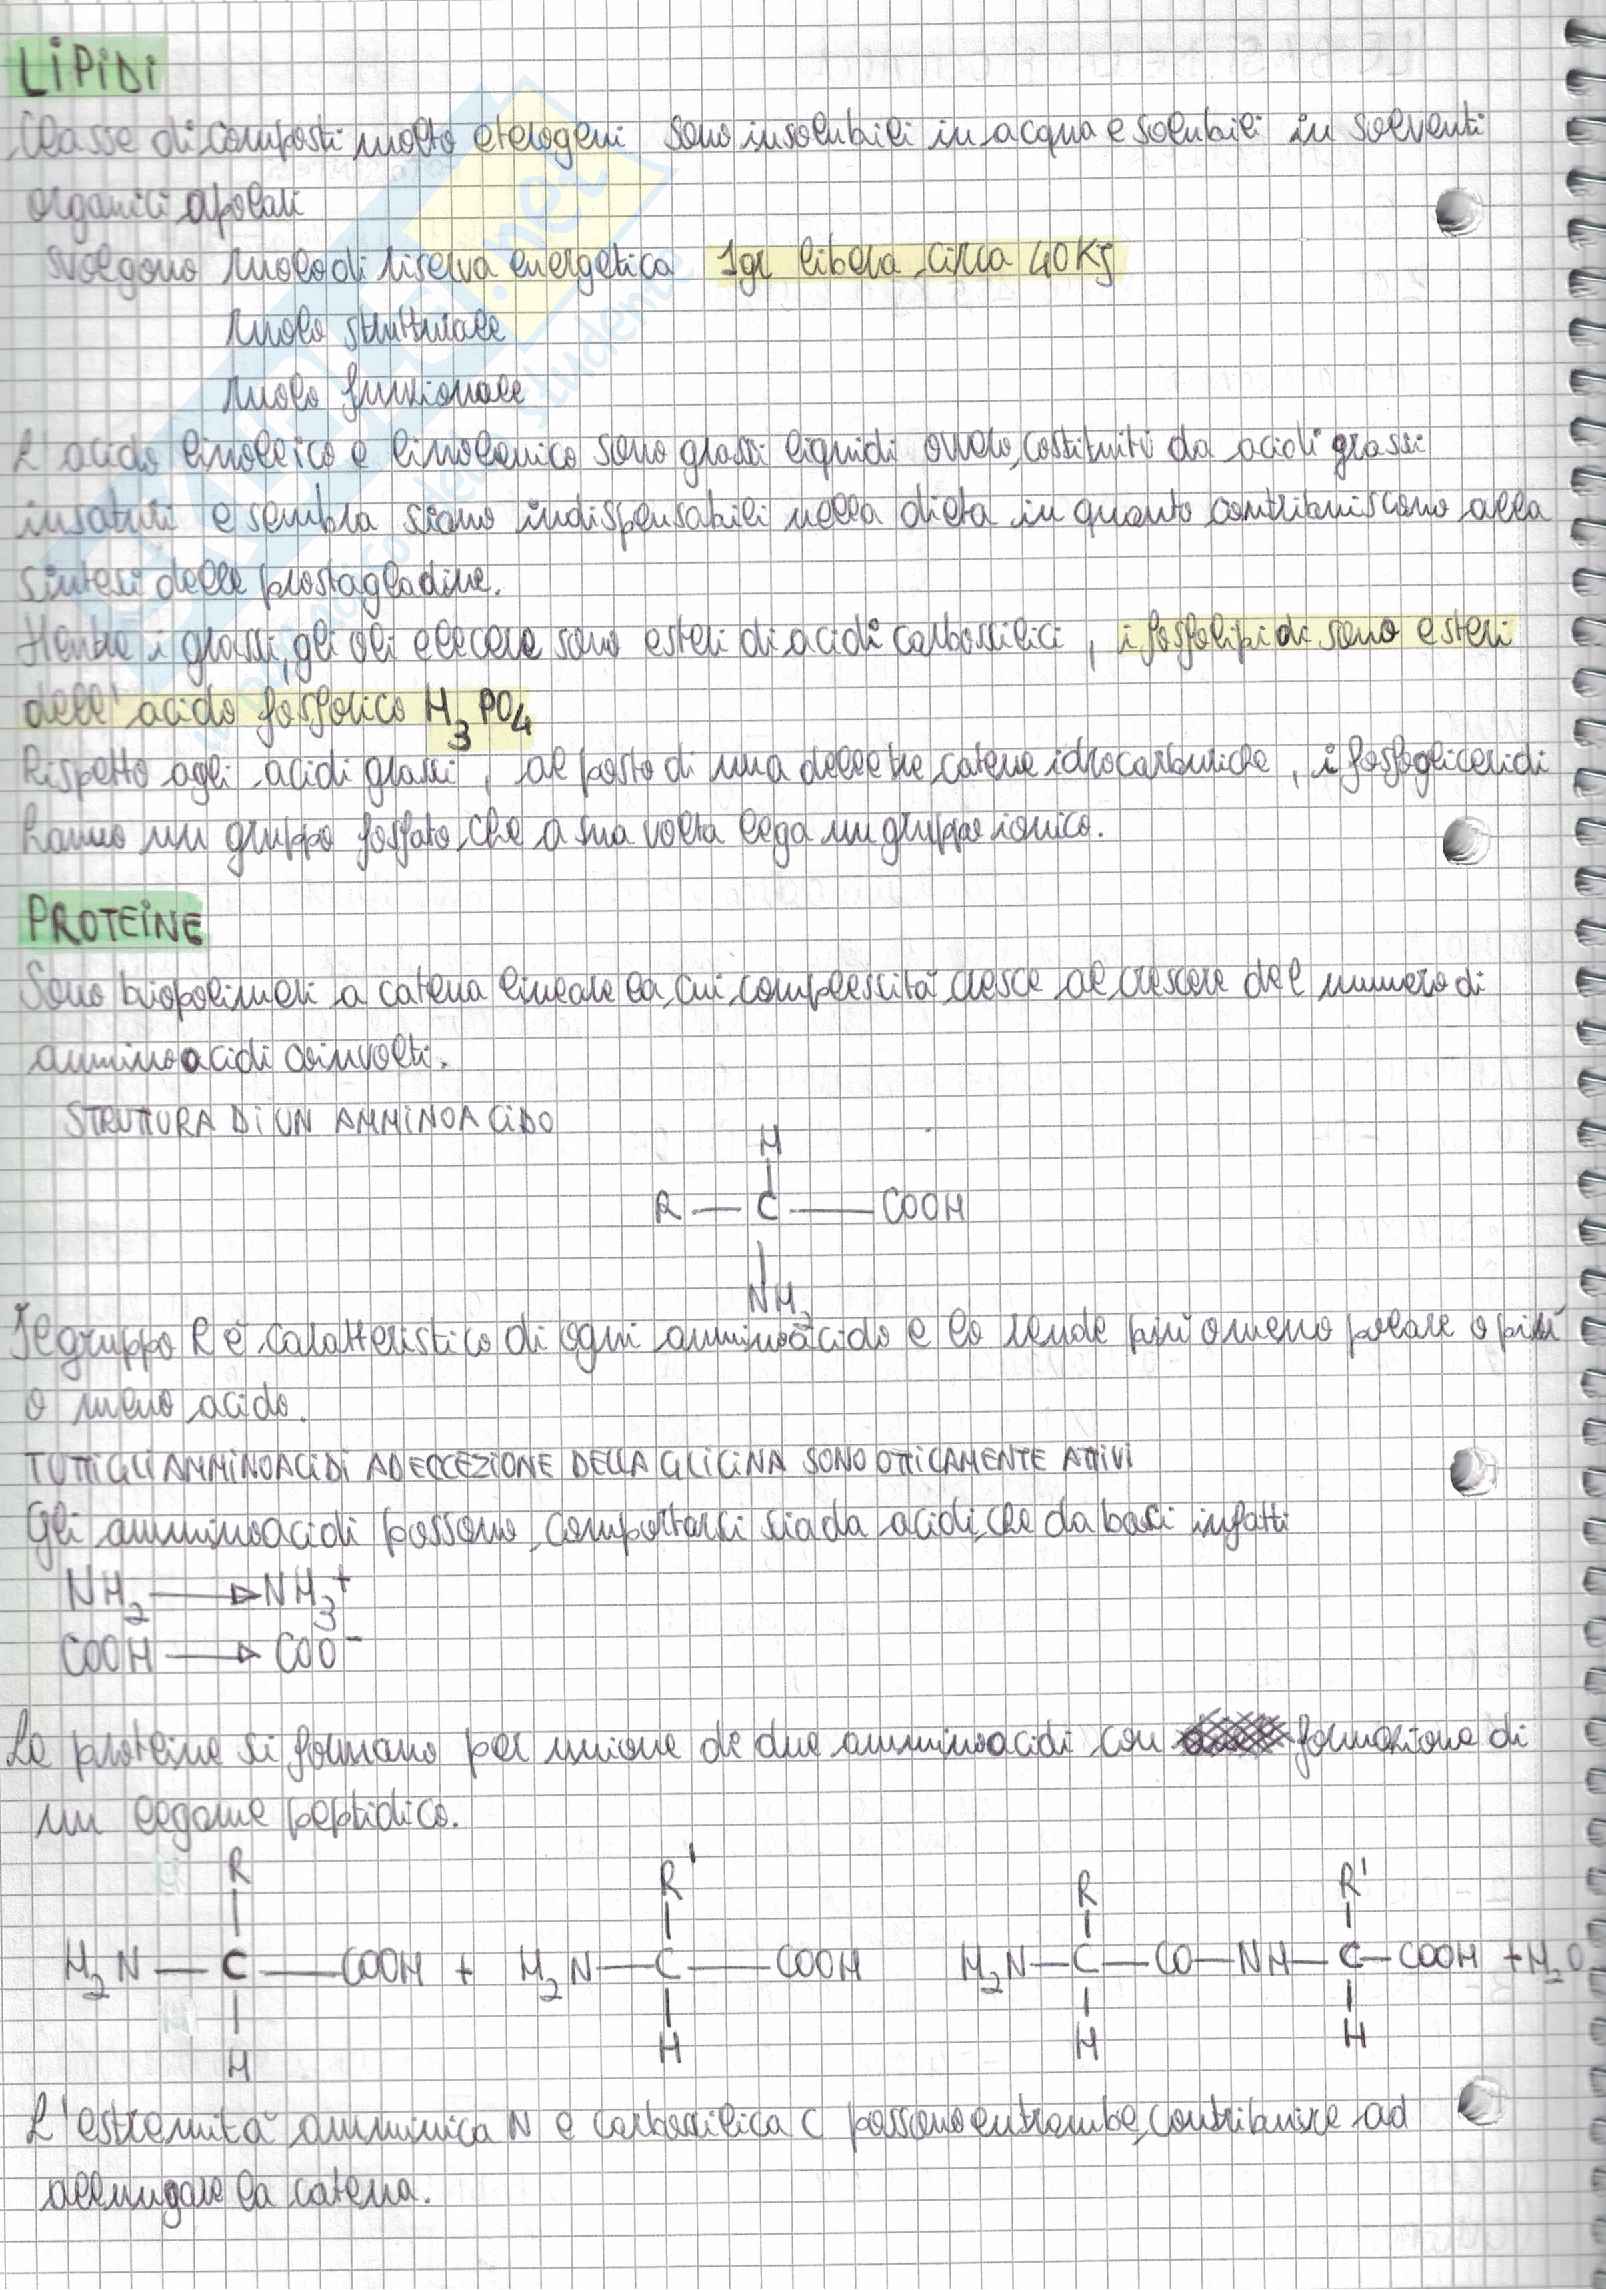 LiPiDi
Classe di composti molto eterogeni sono insolubili in acqua e solubili in solventi
organici apolari
svolgono ruolo di riserva energetica 1gr libera circa 40 KJ
ruolo strutturale
ruolo funzionale
L'acido linoleico e linolenico sono grassi liquidi ovvero costituiti da acidi grassi
insaturi e sembra siano indispensabili nella dieta in quanto contribuiscono alla
sintesi delle prostagladine.
Mentre i grassi, gli oli e le cere sono esteri di acidi carbossilici, i fosfolipidi sono esteri
dell'acido fosforico H3PO4
Rispetto agli acidi grassi, al posto di una delle tre catene idrocarburiche, i fosfogliceridi
hanno un gruppo fosfato che a sua volta lega un gruppo ionico.
PROTEINE
Sono biopolimeri a catena lineare la cui complessità cresce al crescere del numero di
amminoacidi coinvolti.
STRUTTURA DI UN AMMINOACIDO
H
R — C — COOH
NH2
Il gruppo R è caratteristico di ogni amminoacido e lo rende più o meno polare o più
o meno acido.
TUTTI GLI AMMINOACIDI AD ECCEZIONE DELLA GLICINA SONO OTTICAMENTE ATTIVI
Gli amminoacidi possono comportarsi sia da acidi che da basi infatti
NH2 → NH3+
COOH → COO-
Le proteine si formano per unione di due amminoacidi con formazione di
un legame peptidico.
R R' R R'
H2N — C — COOH + H2N — C — COOH H2N — C — CO — NH — C — COOH + H2O
H H H H
L'estremità amminica N e carbossilica C possono entrambe contribuire ad
allungare la catena.